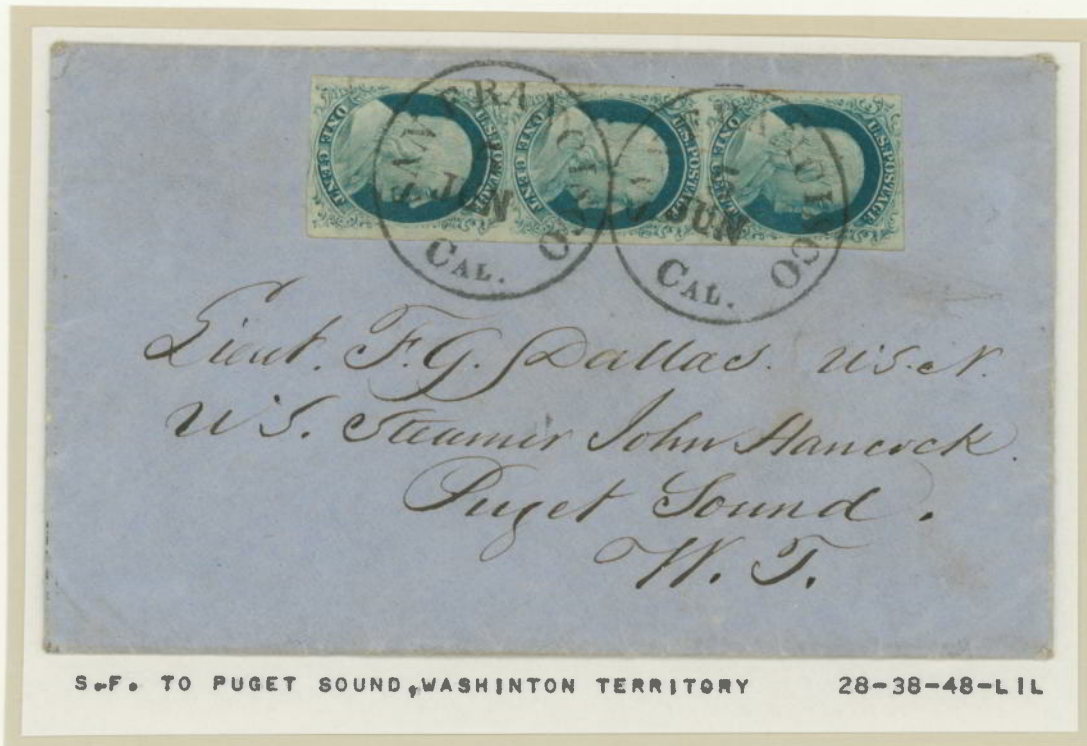 U.S. POSTAGE
ONE CENT
U.S. POSTAGE
ONE CENT
U.S. POSTAGE
ONE CENT
SAN FRANCISCO
JUN
CAL.
SAN FRANCISCO
JUN
CAL.
Lieut. F. G. Dallas. U.S.N.
U.S. Steamer John Hancock.
Puget Sound.
W. T.
S.F. TO PUGET SOUND, WASHINTON TERRITORY 28-38-48-L1L